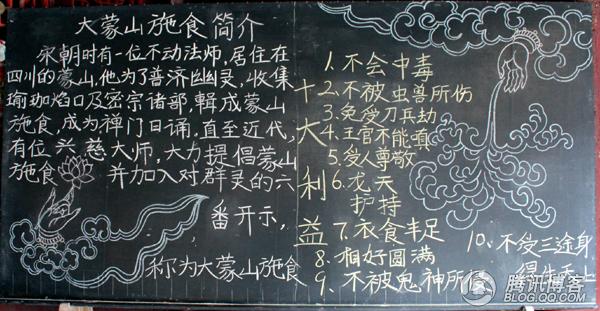 大蒙山施食简介
宋朝时有一位不动法师,居住在
四川的蒙山,他为了普济幽灵,收集
瑜珈焰口及密宗诸部,輯成蒙山
施食,成为禅门日诵,直至近代,
有位兴慈大师,大力提倡蒙山
施食 并加入对群灵的六
番开示,
称为大蒙山施食
十大利益
1. 不会中毒
2. 不被虫兽所伤
3. 免受刀兵劫
4. 王官不能嗔
5. 受人尊敬
6. 龙天
护持
7. 衣食丰足
8. 相好圆满
9. 不被鬼神所
10. 不受三途身
得生天上
腾讯博客
BLOG.QQ.COM